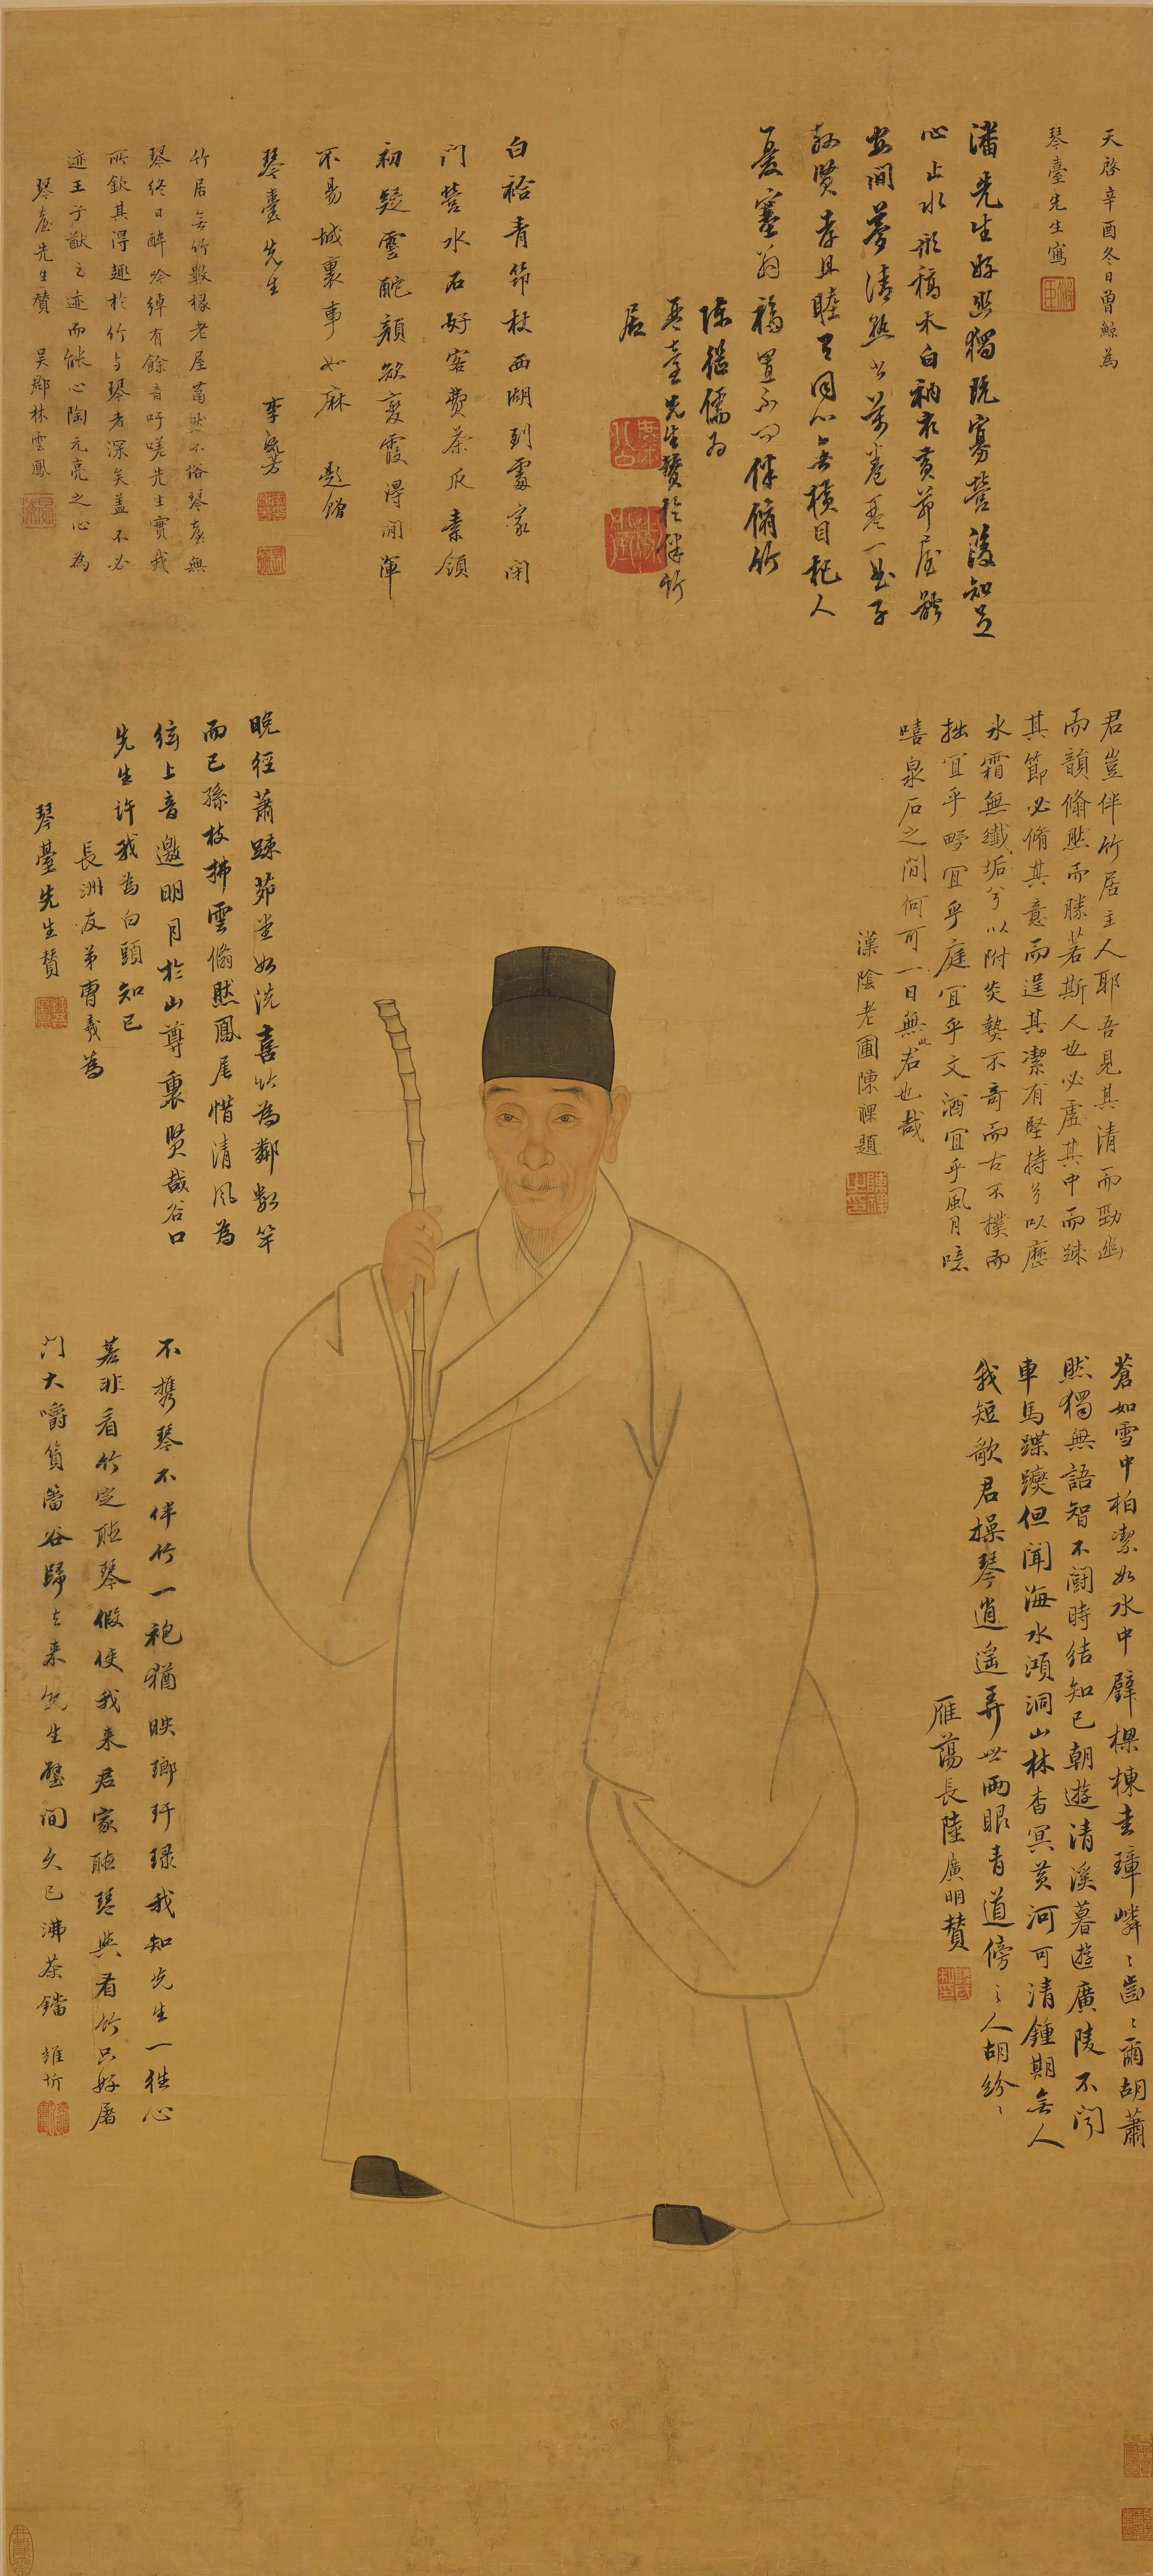 天啓辛酉冬日曾鯨為
琴臺先生寫
潘先生好幽獨玩寡營後知足
心止水形槁木白衲衣黃茆屋齡
安間夢清熟書萬卷琴一曲子
孫賢孝且睦百同心無橫目杞人
憂塞翁福置不問伴脩竹
陳繼儒為
琴臺先生贊於伴竹
居
白袷青筇杖西湖到處家閑
門營水石好客費茶瓜素領
初疑雲酡顏欲變霞得閒渾
不易城裏事如麻 題贈
琴臺先生 李
竹居無竹數椽老屋蕭然不俗琴臺無
琴終日醉吟綽有餘音吁嗟先生實我
所欽其得趣於竹与琴者深矣蓋不必
迹王子猷之迹而能心陶元亮之心為
琴臺先生贊 吳郡林雲鳳
君豈伴竹居主人耶吾見其清而勁幽
而韻翛然而勝若斯人也必虛其中而疎
其節必脩其意而逞其潔有堅持兮以歷
氷霜無纖垢兮以附炎埶不奇而古不樸而
拙宜乎野宜乎庭宜乎文酒宜乎風月噫
嘻泉石之間何可一日無此君也哉
漢陰老圃陳祼題
晚徑蕭踈茆堂如洗喜竹為鄰數竿
而已孫枝拂雲翛然鳳尾惜清風為
絃上音邀明月於山尊裏賢哉谷口
先生許我為白頭知已
長洲友弟霄羲為
琴臺先生贊
蒼如雪中柏潔如水中璧樑棟圭璋嶙嶙齒齒爾胡蕭
然獨無語智不鬪時結知已朝遊清溪暮遊廣陵不聞
車馬蹀躞但聞海水澒洞山林杳冥黃河可清鍾期無人
我短歌君操琴逍遙弄世兩眼青道傍之人胡紛紛
雁蕩長陸廣明贊
不携琴不伴竹一袍猶映瑯玕琭我知先生一往心
若非看竹定聽琴假使我来君家聽琴與看竹只好屠
門大嚼篔簹谷歸去来先生壁間久已沸茶鐺 維圻